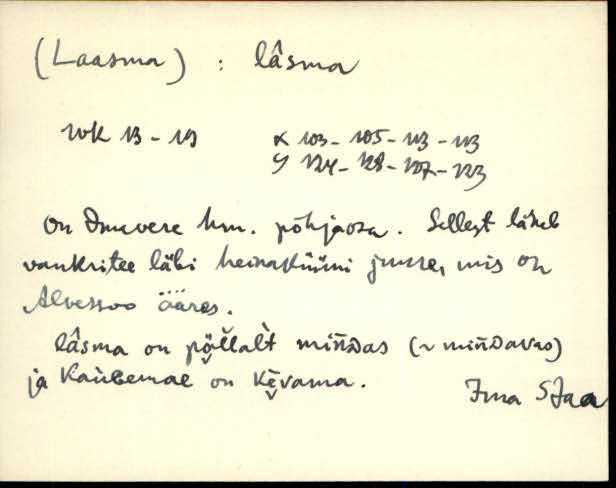 (Laasma) : lâsma
WK 13-19 X 103-105-113-113
Y 124-128-127-123
On Imavere hm. põhjaosa. Sellest läheb
vankritee läbi heinaküüni juure, mis on
Alvessoo ääres.
lâsma on põllalt minDas (~ minDavas)
ja on kevama.